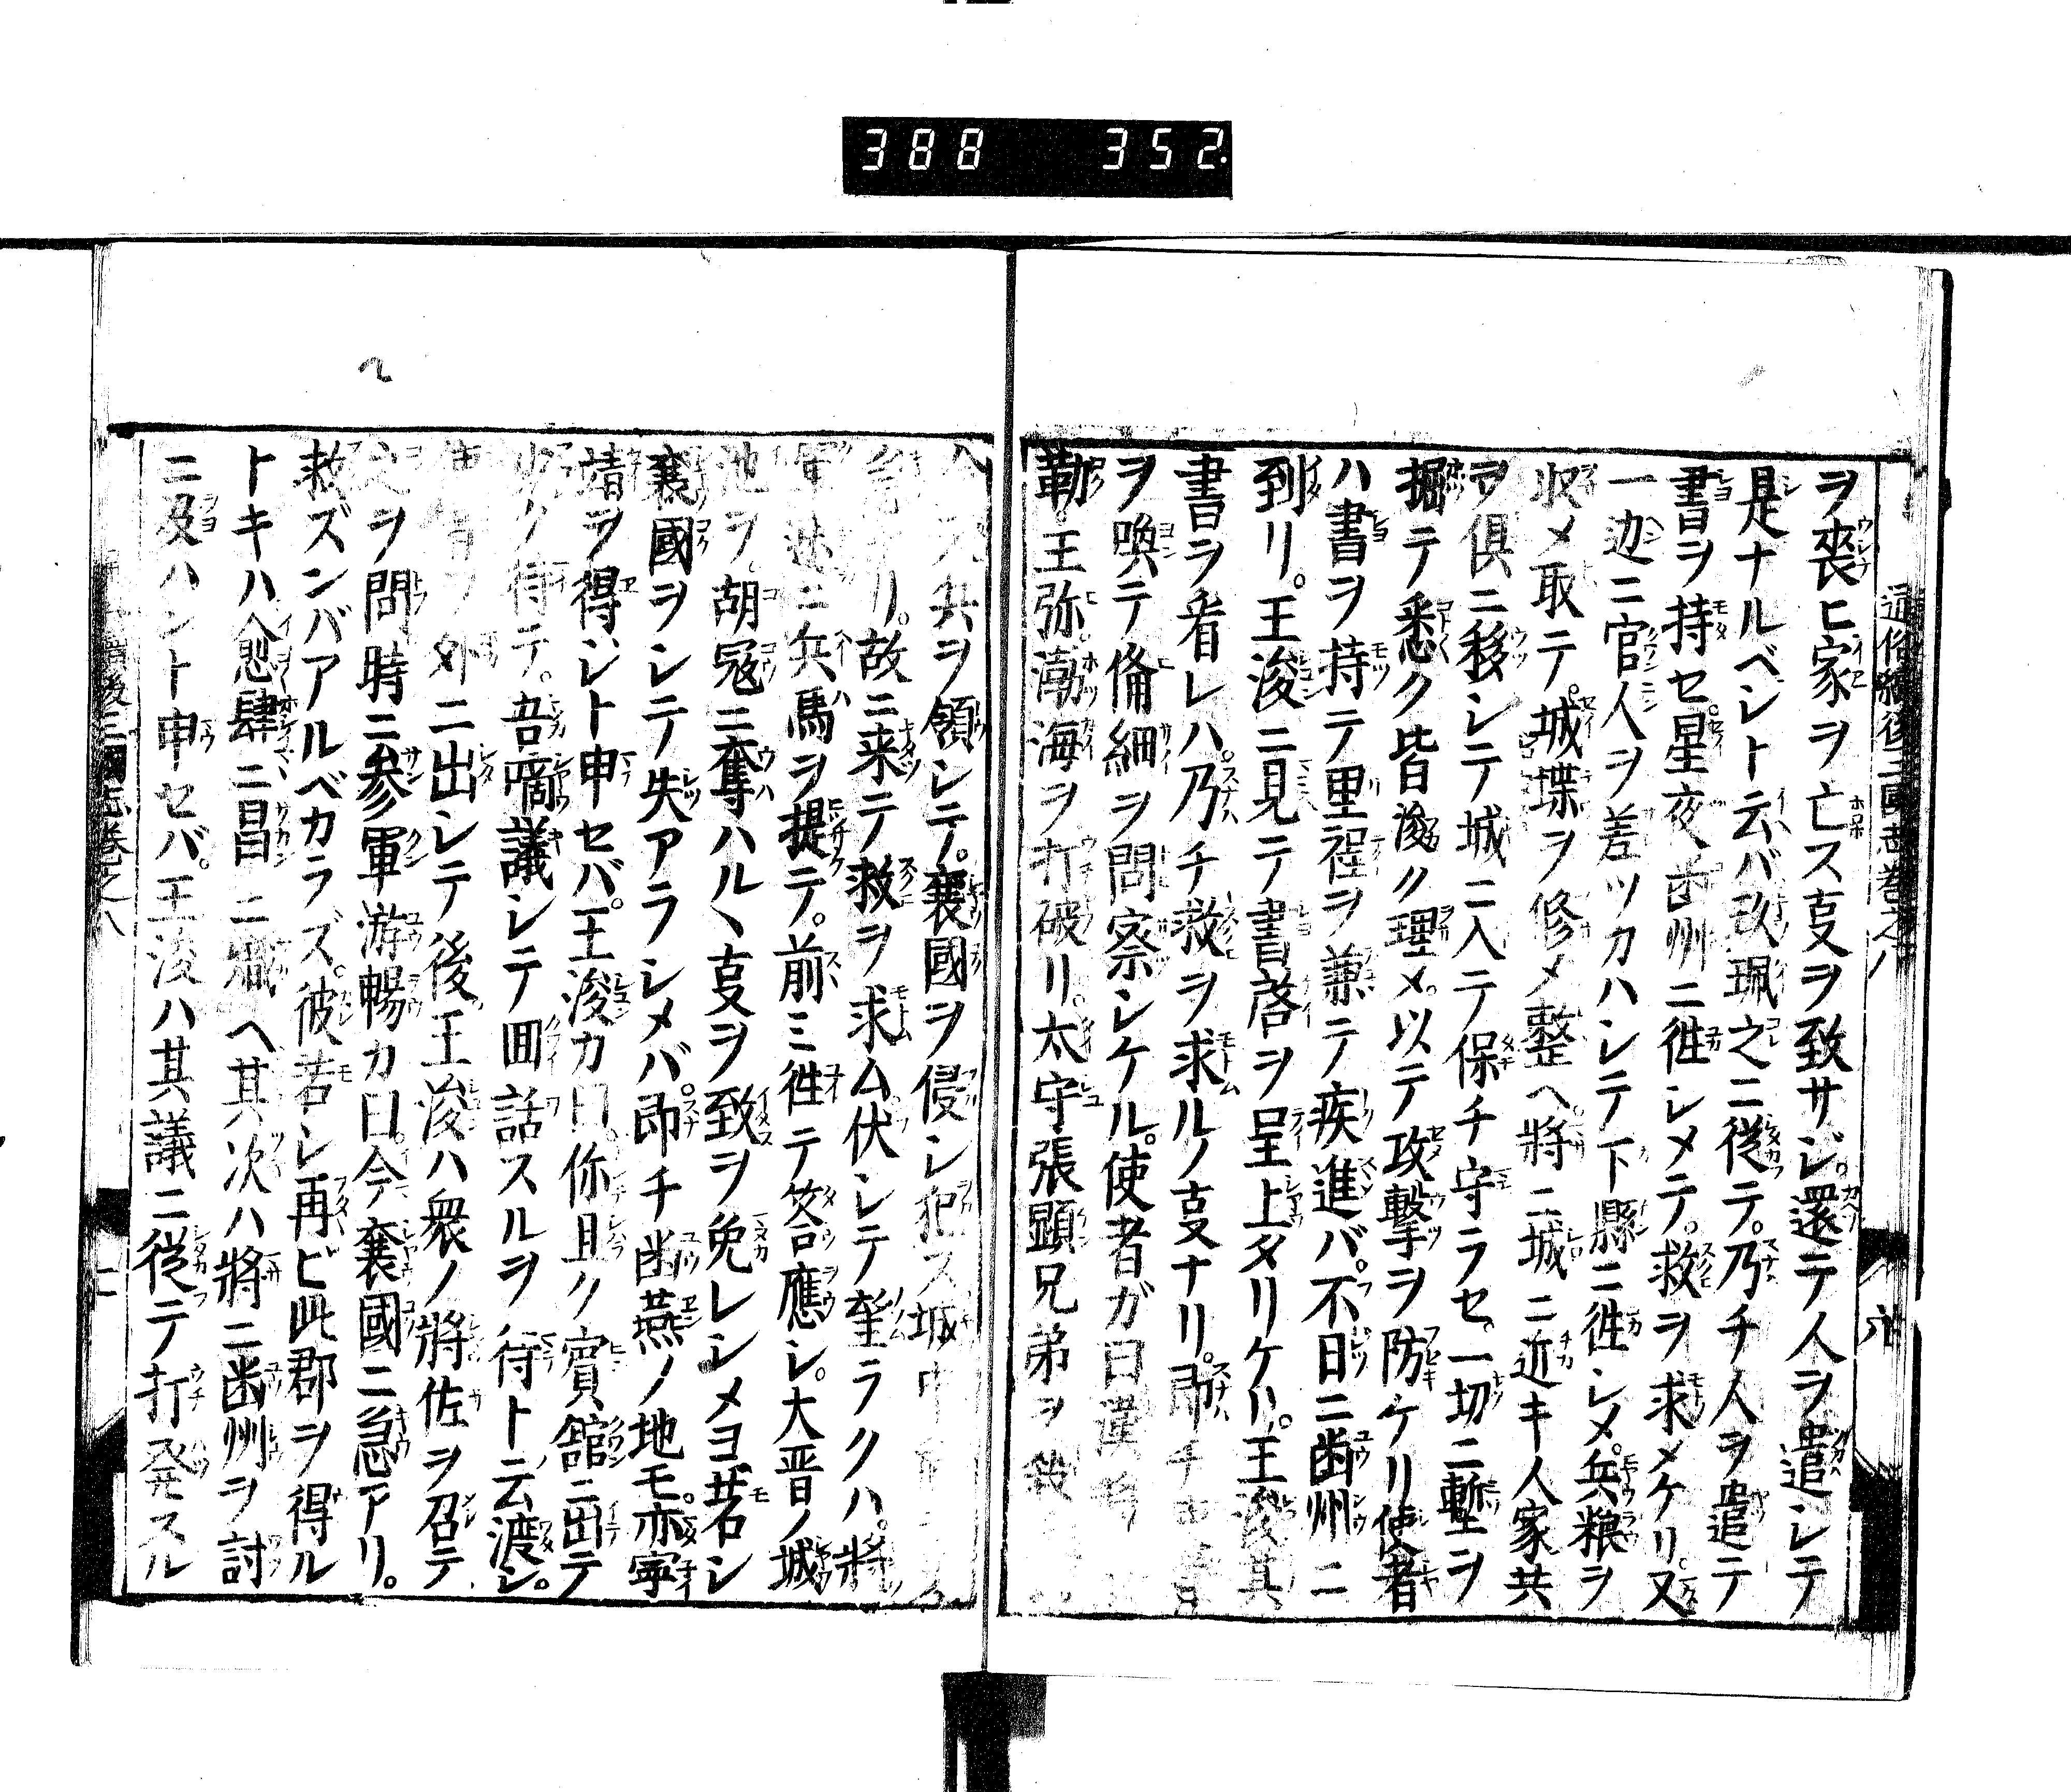 388 352.
通俗續後三國志巻之八
ヲ喪ヒ家ヲ亡ス叓ヲ致サジ。還テ人ヲ遣シテ
是ナルベシト云バ改珮之ニ從テ。乃チ人ヲ遣テ
書ヲ持セ。星夜幽州ニ徃シメテ。救ヲ求メケリ。又
一边ニ官人ヲ差ツカハシテ下縣ニ徃シメ。兵粮ヲ
収メ取テ。城堞ヲ修メ整ヘ將ニ城ニ近キ人家共
ヲ俱ニ移シテ城ニ入テ保チ守ラセ。一切ニ塹ヲ
掘テ悉ク皆浚ク理メ。以テ攻撃ヲ防ケリ使者
ハ書ヲ持テ里程ヲ兼テ疾進バ。不日ニ幽州ニ
到リ。王浚ニ見テ書啓ヲ呈上タリケハ。王浚其
書ヲ看レハ。乃チ救ヲ求ルノ叓ナリ。即チ
ヲ喚テ備細ヲ問察シケル。使者ガ曰漢將
勒。王弥。渤海ヲ打破リ。太守張顕兄弟ヲ殺
兵ヲ領シテ。襄國ヲ侵シ犯ス城中
ナリ。故ニ来テ救ヲ求ム伏シテ望ラクハ。將
軍速ニ兵馬ヲ提テ。前ミ徃テ答應シ。大晋ノ城
池ヲ。胡冦ニ奪ハルヽ叓ヲ致ヲ免レシメヨ若シ
襄國ヲシテ失アラシメバ。即チ幽燕ノ地モ。亦寧
靖ヲ得ジト申セバ。王浚カ曰。你且ク賓舘ニ出テ
少ク待テ。吾商議シテ回話スルヲ待ト云渡シ。
使者ヲ外ニ出シテ後王浚ハ衆ノ將佐ヲ召テ
之ヲ問時ニ参軍游暢カ曰今襄國ニ急アリ。
救ズンバアルベカラズ。彼若シ再ビ此郡ヲ得ル
トキハ愈肆ニ昌ニ熾ヘ其次ハ將ニ幽州ヲ討
ニ及ハント申セバ。王浚ハ其議ニ從テ打発スル
後三國志巻之八